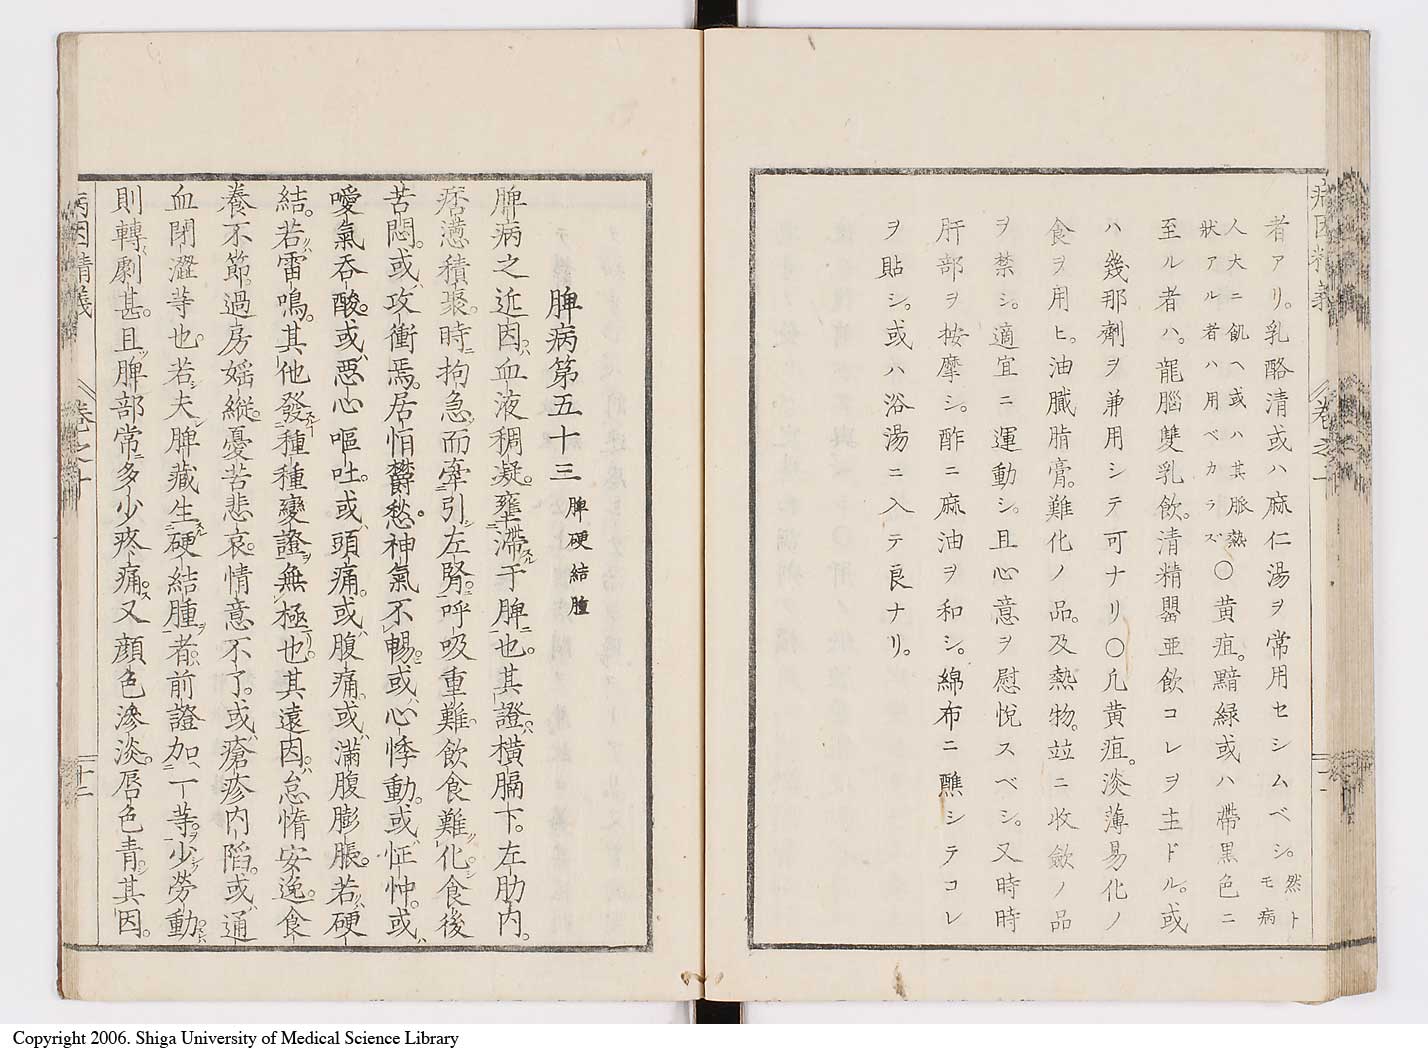 者アリ。乳酪清或ハ麻仁湯ヲ常用セシムベシ。然トモ病
人大ニ飢ヘ或ハ其脈熱
狀アル者ハ用ベカラズ〇黄疸。黯緑或ハ帶黒色ニ
至ル者ハ。龍腦雙乳飲。清精罌亜飲コレヲ主ドル。或
ハ幾那劑ヲ兼用シテ可ナリ〇凢黄疸。淡薄易化ノ
食ヲ用ヒ。油膩脂膏。難化ノ品。及熱物。竝ニ收歛ノ品
ヲ禁シ。適宜ニ運動シ。且心意ヲ慰悦スベシ。又時時
肝部ヲ按摩シ。酢ニ麻油ヲ和シ。綿布ニ醮シテコレ
ヲ貼シ。或ハ浴湯ニ入テ良ナリ。
脾病第五十三 脾硬結腫
脾病之近因。血液稠凝。壅滯于脾也。其證。横膈下。左肋内。
痞懣積聚。時拘急。而牽引左腎。呼吸重難。飲食難化。食後
苦悶。或攻衝焉。居恒鬱愁。神氣不暢。或心悸動。或怔忡。或
噯氣吞酸。或惡心嘔吐。或頭痛。或腹痛。或滿腹膨脹。若硬
結。若雷鳴。其他發種種變證無極也。其遠因。怠惰安逸。食
養不節。過房婬縱。憂苦悲哀。情意不了。或瘡疹内陷。或通
血閉澀等也。若夫脾藏生硬結腫者。前證加一等。少勞動
則轉劇甚。且脾部常多少疼痛。又顔色滲淡。唇色青。其因。
病因精義
卷之十
十二